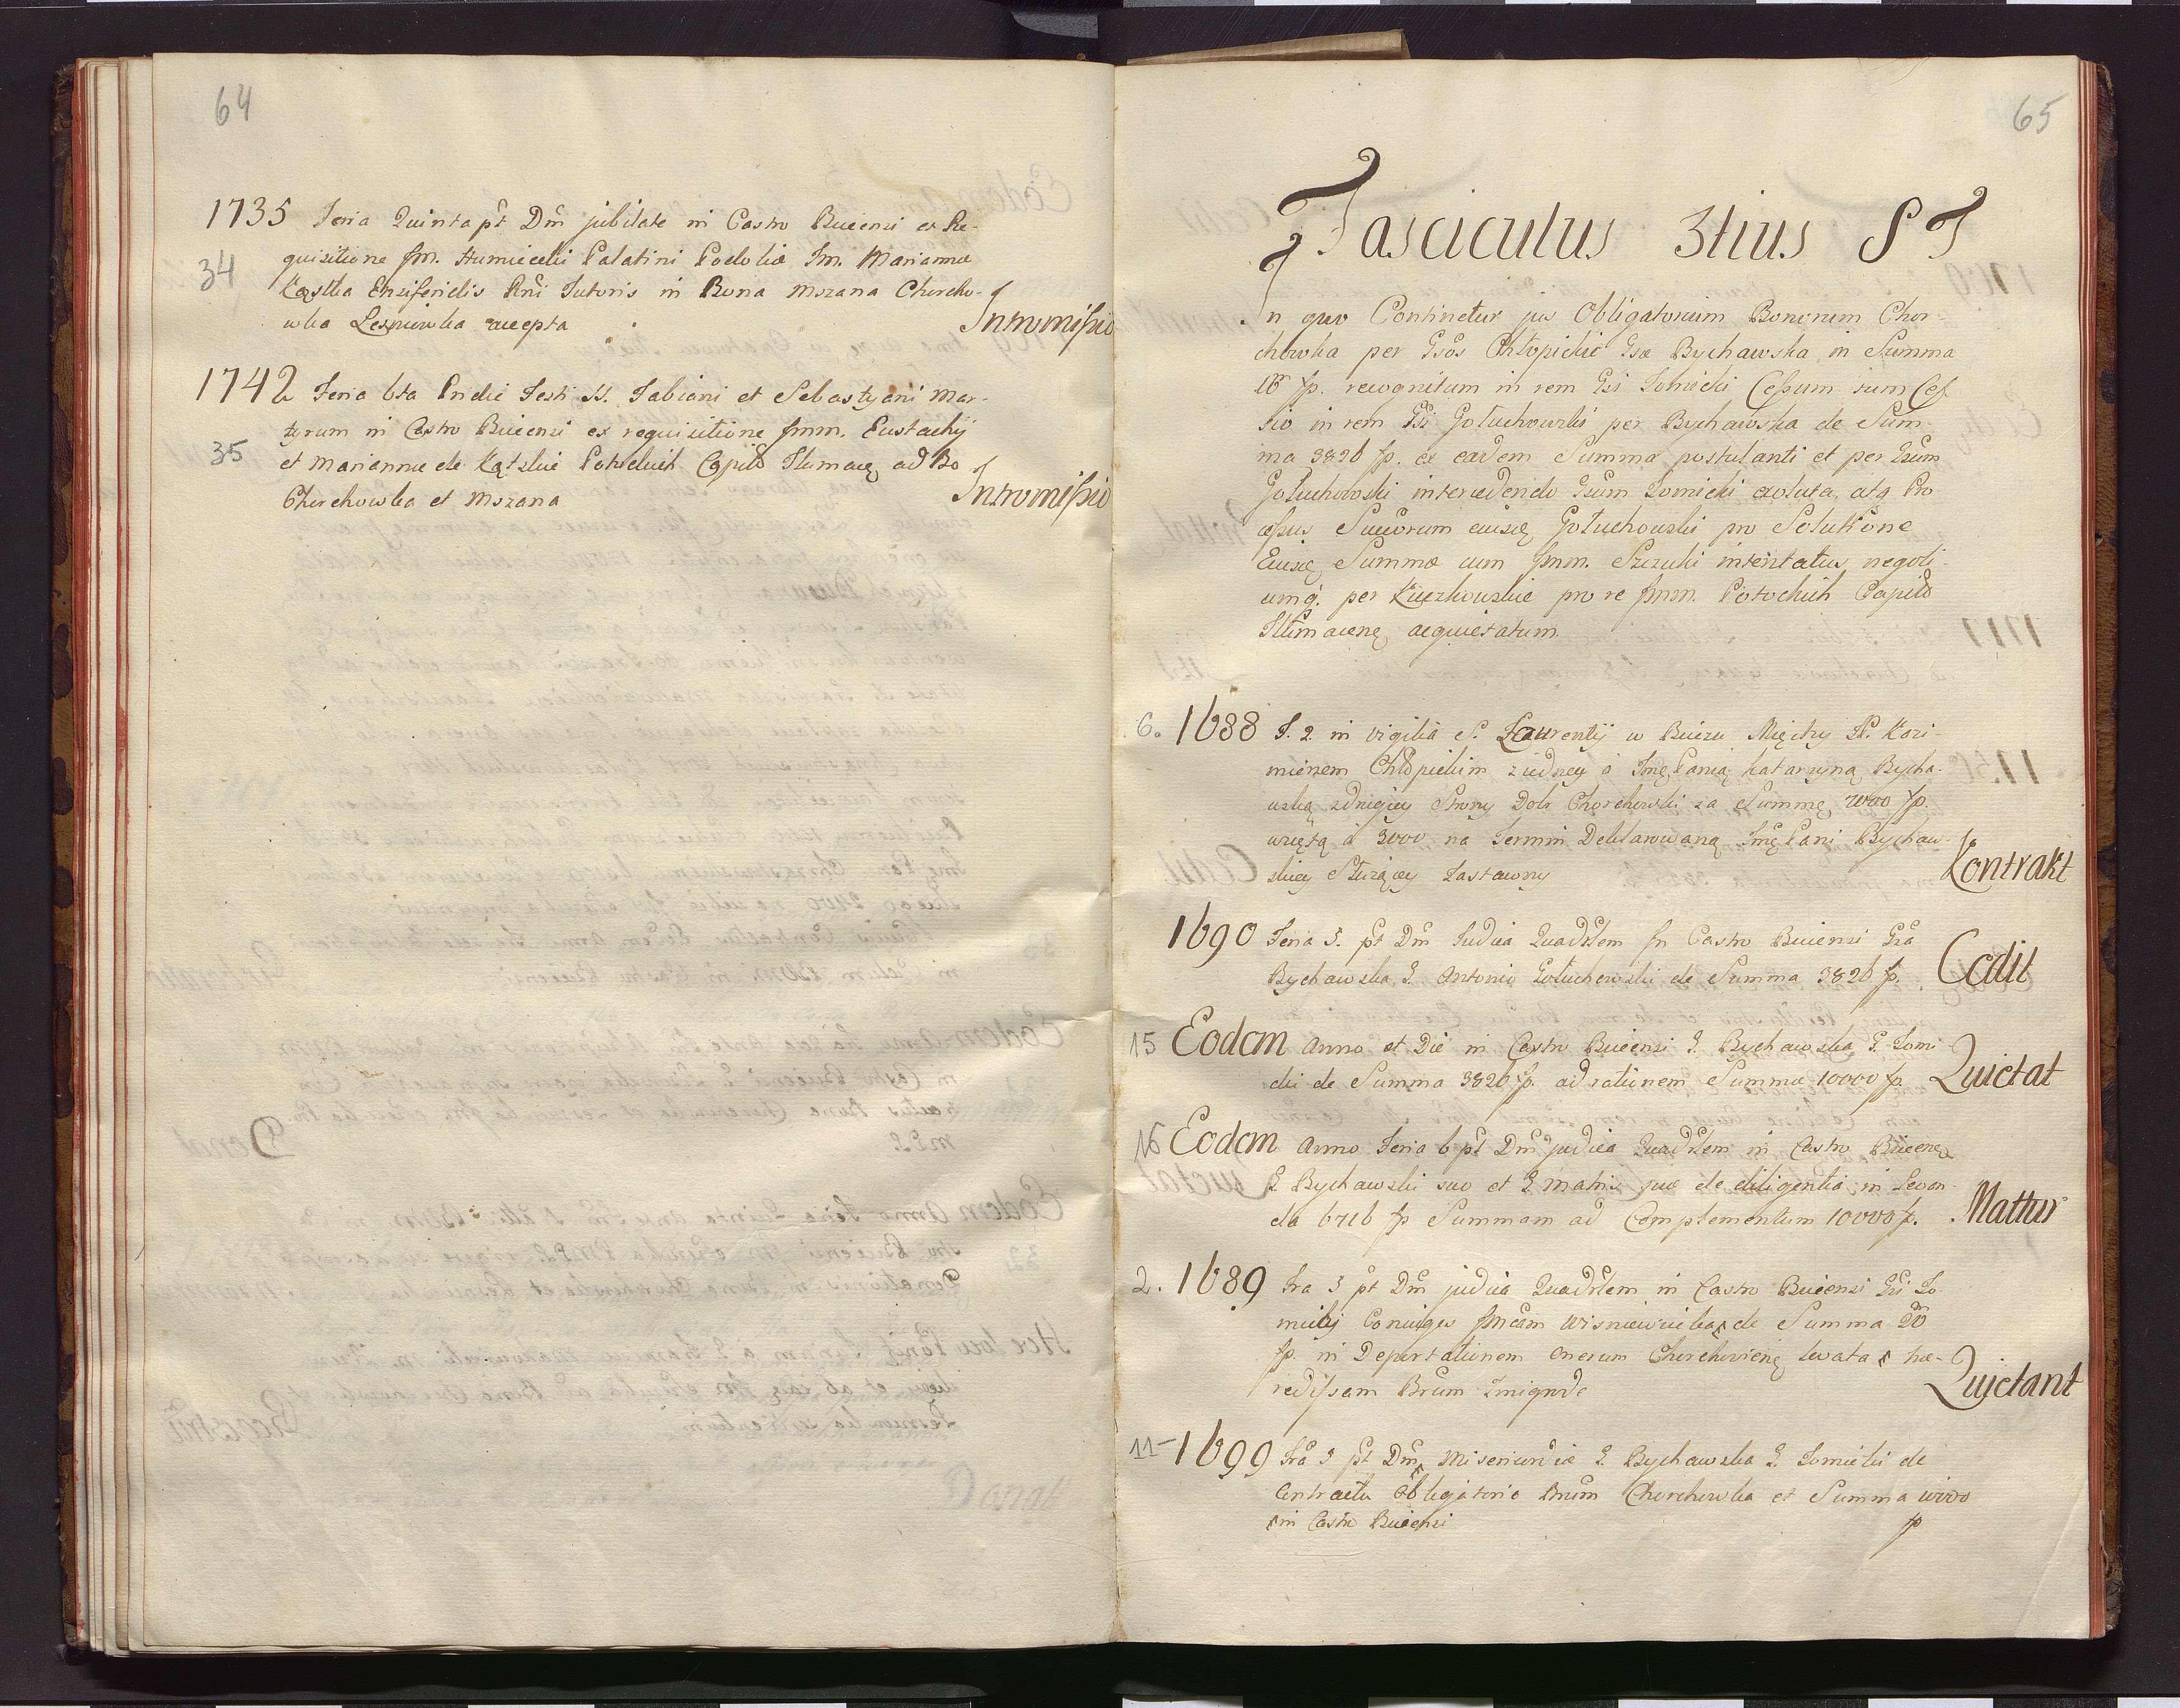 64
1735 Feria Quinta pt Dm jubilate in Castro Buceusi ex Re-
34
quisitione Jm. Humiecki Palatini Podoliæ Jm. Mariannæ
Kąska Ensiferidis Rni Tutoris in Bona Mszana Chorcho-
wka Leśniowka accepta
Intromissio
1742 Feria 6ta Pridie Festi SS. Fabiani et Sebastyani Mar-
tyrum in Castro Biecensi ex requisitione Jmm. Eustachij
35
et Mariannæ de Kątskie Potockich Capito Tlumacz ad Bo
Chorchowka et Mszana
Intromissio
65
Fasciculus 3tius S T
In quo Continetur jus Obligatorium Bonorum Chor-
chowka per Gsos Chłopickie Gsæ Bychawska in Summa
fp. recognitum in rem Gsi Łomicki Cessum sum Ces
sio in rem Gsi Gołuchowski per Bychawska de Sum
ma 3826 fp. ex eadem Summa postulanti et per Gsum
Gołuchowski intercedendo Gsum Łomicki exoluta, atq Pro
cessus Succorum eiusq Gołuchowski pro Solutione
Eiusq Summæ cum Jmm. Szczuki intentatus negoti-
umq. per Kiczkowskie pro re Jmm. Potockich Capito
Tlumacenę acquietatum
6. 1688 F. 2. in vigilia S. Laurentij w Bieczu Między JP. Kazi-
mierzem Chłopickim z iedney a Jmę Panią Katarzyną Bycha-
wską zdrugiey Strony Dobr Chorchowki za Summę 7000 fp.
wziętą a 3000 na Termin Deklarowaną Jmę Pani Bychaw-
skiey Służącey Zastawny
Kontrakt
1690 Feria 5. pt Dm Judica Quadrlem In Castro Biecensi Gsa
Bychawska G. Antonio Gołuchowski de Summa 3826 fp.
Cedit
15 Eodem Anno et Die in Castro Biecensi G. Bychawska G. Łomi
cki de Summa 3826 fp. ad rationem Summæ 10000 fp
Quietat
16 Eodem Anno Feria 6 pt Dm judica Quadrlem in Castro Biecenę
G. Bychawski suo et G. matris suæ de diligentia in Levan-
da 6716 fp Summam ad Complementum 10000 fp.
2. 1689 Fra 5 pt Dm judica Quadrlem in Castro Biecensi Gsi Ło
mickij Coniuges Jmcam Wisniewiecka de Summa
fp. in Deportationem onerum Chorchowienę levata hæ-
redissam Brum Zmigrode
Quietant
11- 1699 Fra 5 pt Dm Misericordiæ G. Bychawska G. Łomicki de
Contractu Obligatorio Bnum Chorchowka et Summa 10000
in Castro Biecensi fp